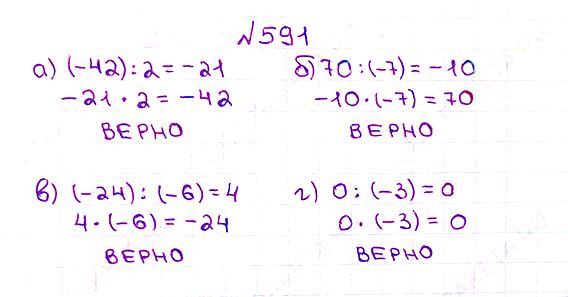 №591
а) (-42) : 2 = -21
-21 · 2 = -42
ВЕРНО
б) 70 : (-7) = -10
-10 · (-7) = 70
ВЕРНО
в) (-24) : (-6) = 4
4 · (-6) = -24
ВЕРНО
г) 0 : (-3) = 0
0 · (-3) = 0
ВЕРНО